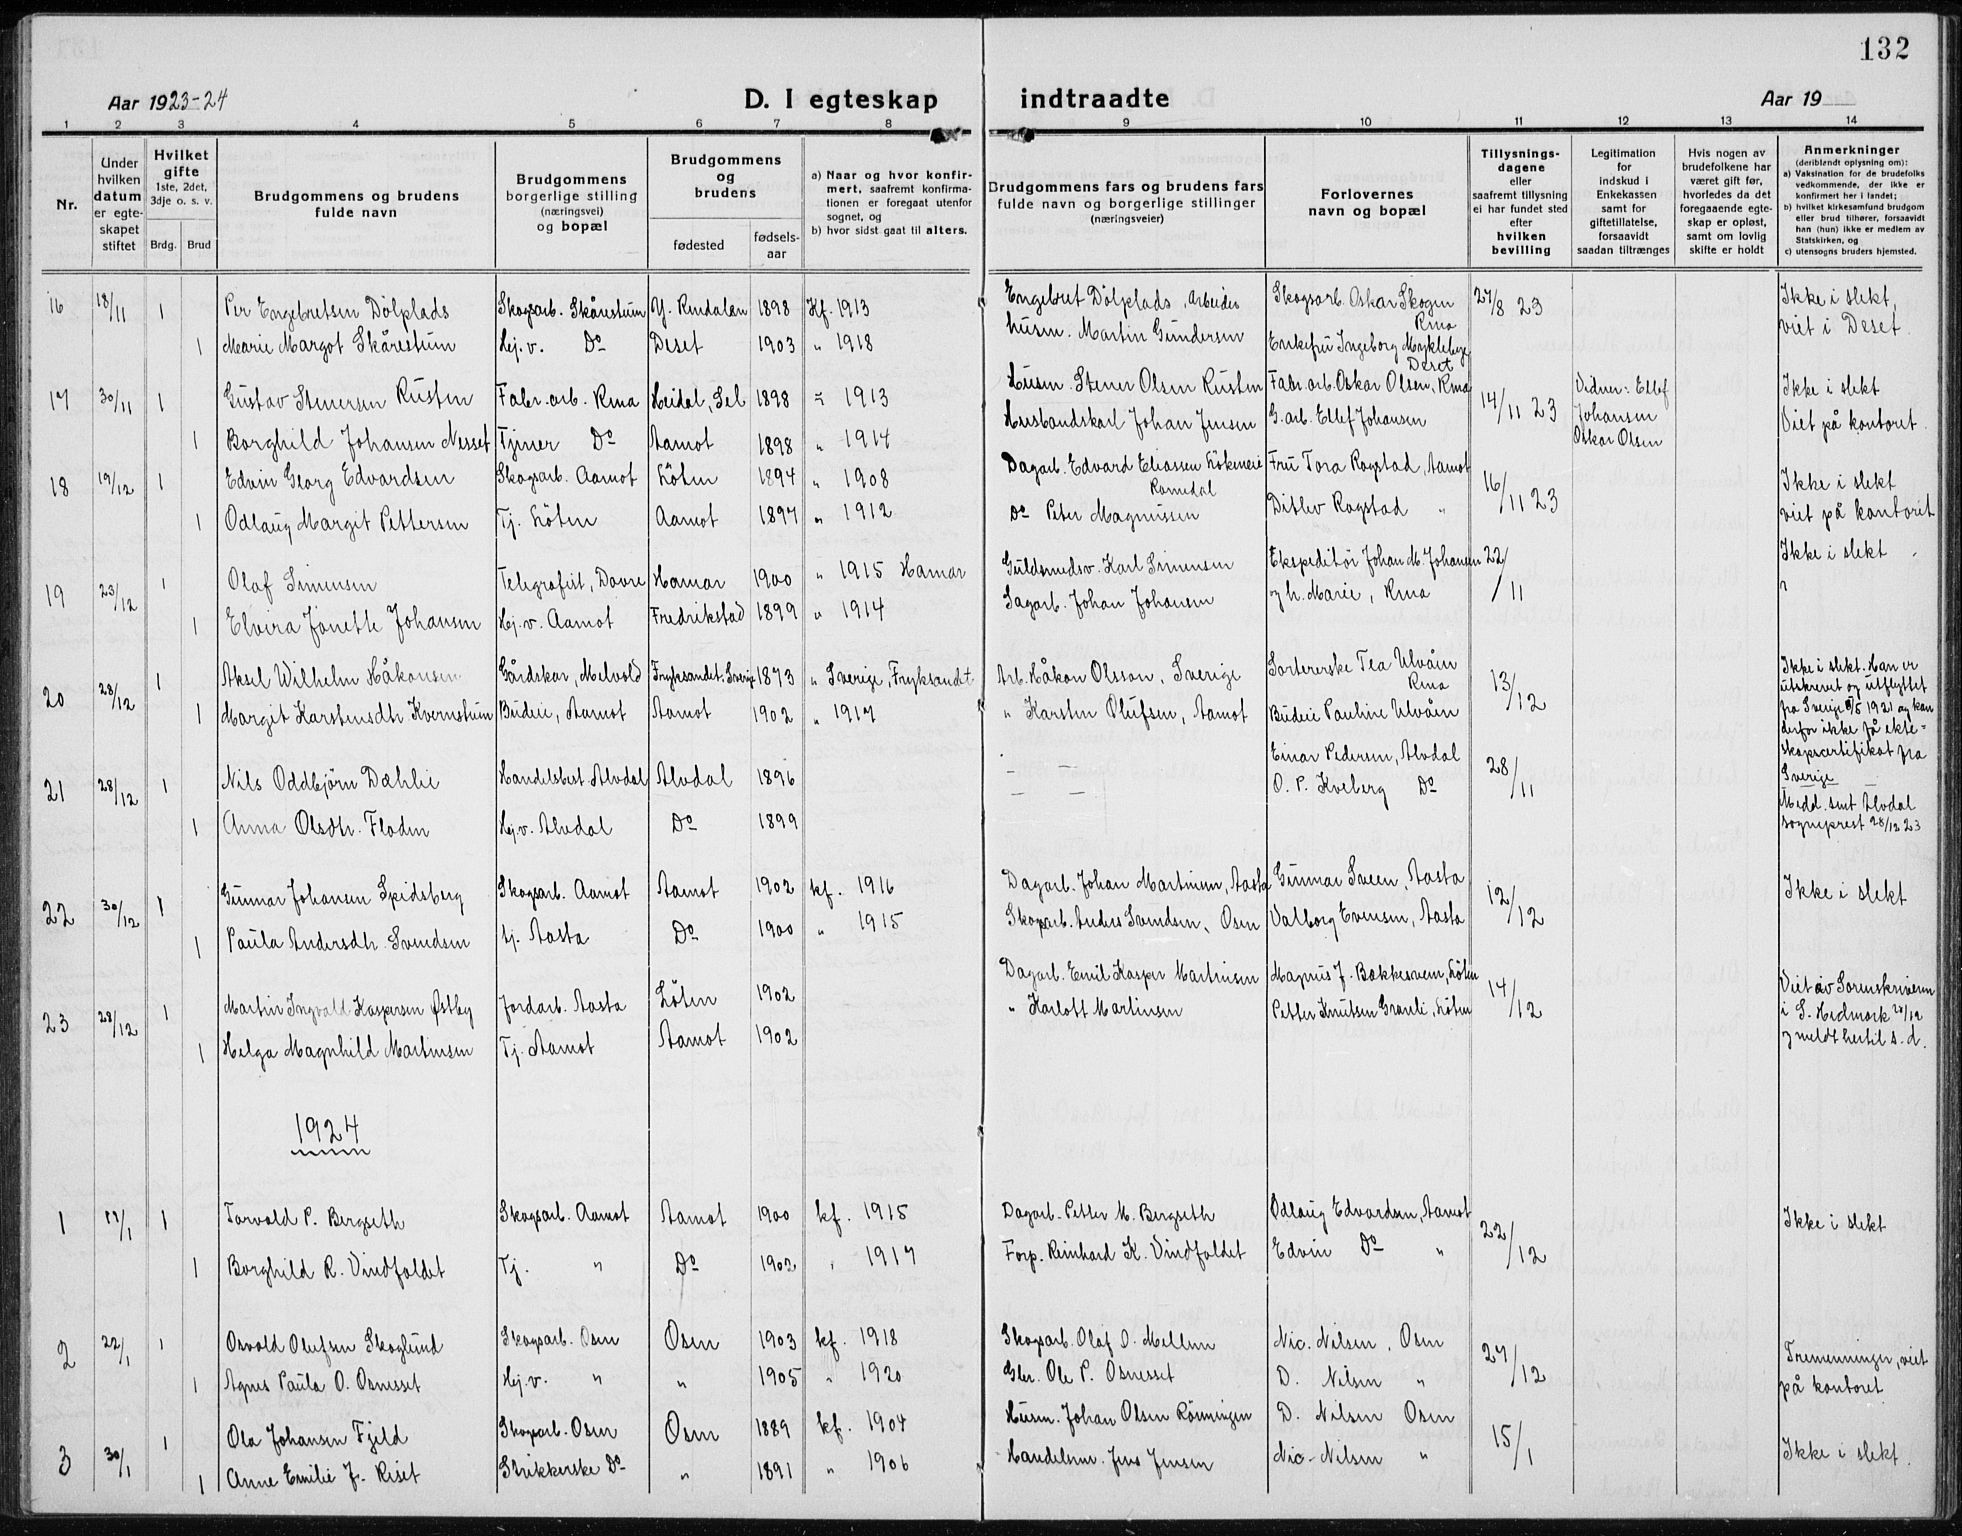 132
Aar 1923-24 D. I egteskap indtraadte Aar 19
1 2 3 4 5 6 7 8 9 10 11 12 13 14
Nr.
Under hvilken datum er egteskapet stiftet
Hvilket gifte 1ste, 2det, 3dje o. s. v. Brdg. Brud
Brudgommens og brudens fulde navn
Brudgommens borgerlige stilling (næringsvei) og bopæl
Brudgommens og brudens fødested fødselsaar
a) Naar og hvor konfirmert, saafremt konfirmationen er foregaat utenfor sognet, og
b) hvor sidst gaat til alters.
Brudgommens fars og brudens fars fulde navn og borgerlige stillinger (næringsveier)
Forlovernes navn og bopæl
Tillysningsdagene eller saafremt tillysning ei har fundet sted efter hvilken bevilling
Legitimation for indskud i Enkekassen samt for giftetillatelse, forsaavidt saadan tiltrænges
Hvis nogen av brudefolkene har været gift før, hvorledes da det foregaaende egteskap er opløst, samt om lovlig skifte er holdt
Anmerkninger (deriblandt oplysning om):
a) Vaksination for de brudefolks vedkommende, der ikke er konfirmert her i landet;
b) hvilket kirkesamfund brudgom eller brud tilhører, forsaavidt han (hun) ikke er medlem av Statskirken, og
c) utensogns bruders hjemsted.
16 18/11 1 Per Engebretsen Dölplads Skogsarb. Skårestum Y. Rendalen 1898 Kf. 1913 Engebret Dölplads, arbeider Skogsarb. Oskar Skogen Rena 27/8 23 Ikke i slekt,
1 Marie Margot Skårestum Hj.v. Do Deset 1903 " 1918 husm. Martin Gundersen Enkefru Ingeborg Mykleby Deset viet i Deset.
17 30/11 1 Gustav Stenersen Rusten Fabr.arb. Rena Heidal, Sel 1898 " 1913 Husm. Stener Olsen Rusten Fabr.arb. Oskar Olsen, Rena 14/11 23 Vidner: Ellef Johansen Oskar Olsen Ikke i slekt
1 Borghild Johansen Nesset Tjener Do Aamot 1898 " 1914 Husbandskarl Johan Jensen G.arb. Ellef Johansen Viet på kontoret.
18 19/12 1 Edvin Georg Edvardsen Skogsarb. Aamot Löten 1894 " 1908 Dagarb. Edvard Eliassen Romedal Fru Tora Rogstad, Aamot 16/11 23 Ikke i slekt
1 Odlaug Margit Pettersen Tj. Löten Aamot 1897 " 1912 Do Peter Magnussen Ditlev Rogstad " viet på kontoret
19 23/12 1 Olaf Simensen Telegrafist, Dovre Hamar 1900 " 1915 Hamar Guldsmedsv. Karl Simensen Ekspeditör Johan M. Johansen 22/11 Ikke i slekt
1 Elvira Jonette Johansen Hj.v. Aamot Fredrikstad 1899 " 1914 Sagarb. Johan Johansen og h. Marie, Rena
20 28/12 1 Aksel Wilhelm Håkonsen Gårdskar, Melvold Fryksandet, Sverige 1873 " Sverige, Fryksandet Arb. Håkon Olsson, Sverige Sortererske Tea Ulvåen Rena 13/12 Ikke i slekt. Han er utskrevet og utflyttet fra Sverige 8/5 1921 og kan derfor ikke få ekteskapscertifikat fra Sverige
1 Margit Karstensdtr Kvernstum Budeie, Aamot Aamot 1902 " 1917 " Karsten Olufsen, Aamot Budeie Pauline Ulvåen
21 28/12 1 Nils Oddbjörn Dæhlie Handelsbest. Alvdal Alvdal 1896 — — Einar Pedersen, Alvdal 28/11
1 Anna Olsdtr. Floden Hj.v. Alvdal Do 1899 — — O. P. Kveberg Do Medd. sent Alvdal sogneprest 28/12 23
22 30/12 1 Gunnar Johansen Speidsberg Skogsarb. Aamot Aamot 1902 kf. 1916 Dagarb. Johan Martinsen, Aasta Gunnar Sveen, Aasta 12/12 Ikke i slekt
1 Paula Andersdtr. Svendsen tj. Aasta Do 1900 " 1915 Skogsarb. Anders Svendsen, Osen Valborg Evensen, Aasta
23 28/12 1 Martin Ingvald Kaspersen Østby Jordarb. Aasta Löten 1902 Dagarb. Emil Kasper Martinsen Magnus J. Bakkesveen, Löten 14/12 Viet av Sorenskriveren
1 Helga Magnhild Martinsen Tj. Aamot Aamot 1902 " Karlott Martinsen Petter Knutsen Granli, Löten i S. Hedmark 28/12 og meldt hertil s.d.
1924
1 11/1 1 Torvald P. Bergseth Skogsarb. Aamot Aamot 1900 kf. 1915 Dagarb. Petter M. Bergseth Odlaug Edvardsen, Aamot 22/12 Ikke i slekt
1 Borghild R. Vindfaldet Tj. " Do 1902 " 1917 Forp. Reinhard K. Vindfaldet Edvin Do "
2 22/1 1 Osvald Olufsen Skoglund Skogsarb. Osen Osen 1903 kf. 1918 Skogsarb. Olaf O. Mellem Nic. Nilsen, Osen 27/12 Tremenninger, viet
1 Agnes Paula O. Osneset Hj.v. " " 1905 " 1920 Gbr. Ole P. Osnesset D. Nilsen " på kontoret
3 30/1 1 Ola Johansen Fjeld Skogsarb. Osen Osen 1889 kf. 1904 Husm. Johan Olsen Rönningen D. Nilsen Osen 15/1
1 Anne Emilie J. Riset Strikkerske Do " 1891 " 1906 Handelsm. Jens Jensen Nic. Nilsen " Ikke i slekt.